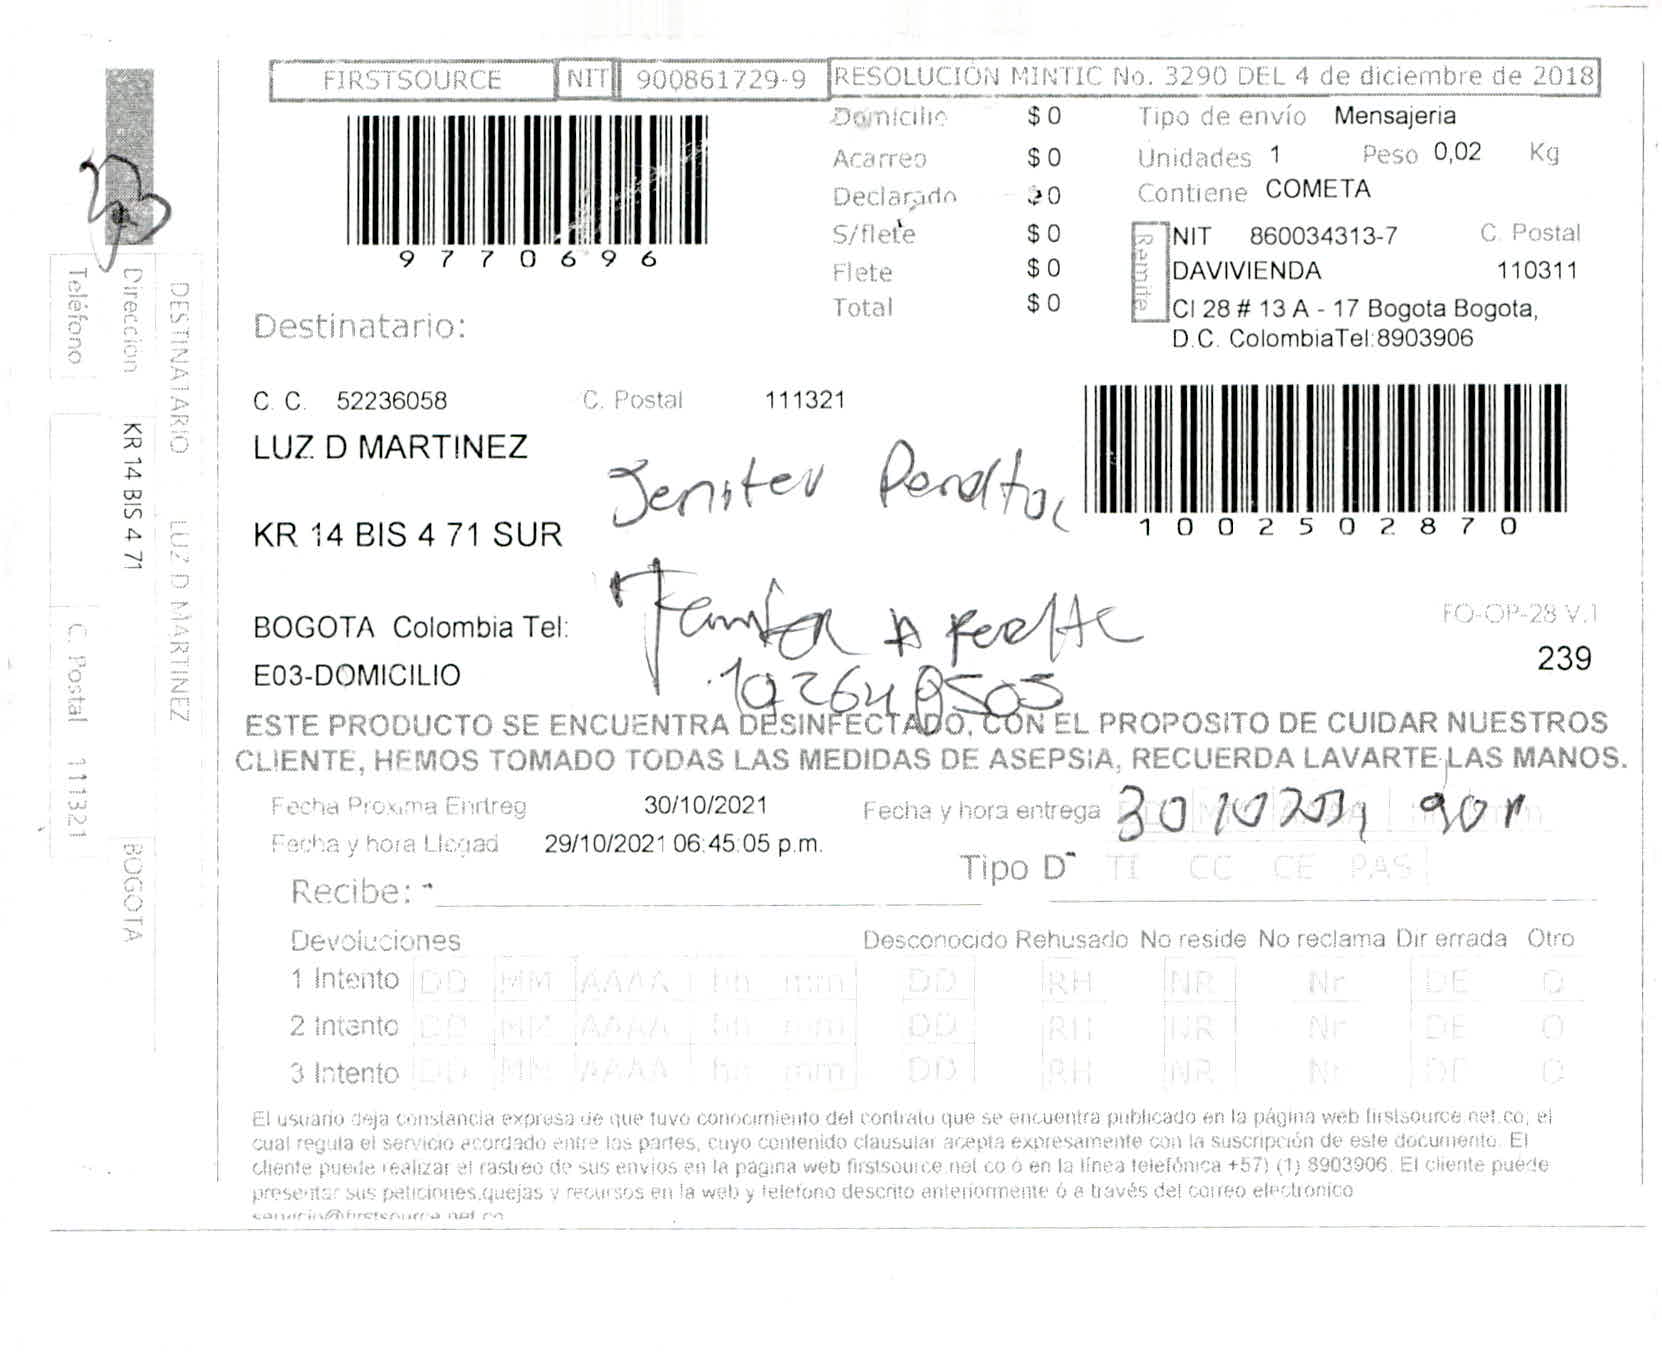 FIRSTSOURCE NIT 900861729-9 RESOLUCIÓN MINTIC No. 3290 DEL 4 de diciembre de 2018
9770696
Domicilio $ 0
Acarreo $ 0
Declarado 0
S/flete $ 0
Flete $ 0
Total $ 0
Tipo de envío Mensajeria
Unidades 1 Peso 0,02 Kg
Contiene COMETA
Remite
NIT 860034313-7 C. Postal
DAVIVIENDA 110311
Cl 28 # 13 A - 17 Bogota Bogota,
D.C. ColombiaTel:8903906
Destinatario:
C. C. 52236058 C. Postal 111321
LUZ D MARTINEZ
KR 14 BIS 4 71 SUR
1002502870
BOGOTA Colombia Tel:
E03-DOMICILIO
FO-OP-28 V.1
239
ESTE PRODUCTO SE ENCUENTRA DESINFECTADO, CON EL PROPOSITO DE CUIDAR NUESTROS
CLIENTE, HEMOS TOMADO TODAS LAS MEDIDAS DE ASEPSIA, RECUERDA LAVARTE LAS MANOS.
Fecha Proxima Entreg 30/10/2021
Fecha y hora entrega 30 10 2021
Fecha y hora Llegad 29/10/2021 06:45:05 p.m.
Tipo D TI CC CE PAS
Recibe:
Devoluciones Desconocido Rehusado No reside No reclama Dir errada Otro
1 Intento DD MM AAAA hh mm DD RH NR Nr DE O
2 Intento DD MM AAAA hh mm DD RH NR Nr DE O
3 Intento DD MM AAAA hh mm DD RH NR Nr DE O
El usuario deja constancia expresa de que tuvo conocimiento del contrato que se encuentra publicado en la página web firstsource.net.co, el
cual regula el servicio acordado entre las partes, cuyo contenido clausular acepta expresamente con la suscripción de este documento. El
cliente puede realizar el rastreo de sus envios en la pagina web firstsource.net co ó en la línea telefónica +57) (1) 8903906. El cliente puede
presentar sus peticiones,quejas y recursos en la web y telefono descrito anteriormente ó a través del correo electronico
servicio@firstsource.net.co
DESTINATARIO LUZ D MARTINEZ
Dirección KR 14 BIS 4 71 BOGOTA
Teléfono C. Postal 111321